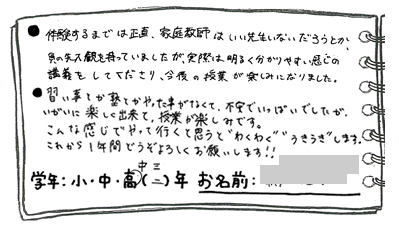 ● 体験するまでは正直、家庭教師はいい先生いないだろうとか、
負の先入観を持っていましたが、実際は明るく分かりやすい感じの
講義をしてくださり、今後の授業が楽しみになりました。
● 習い事とか塾とかやった事がなくて、不安でいっぱいでしたが、
いがいに楽しく出来て、授業が楽しみです。
こんな感じでやって行くと思うと"わくわく""うきうき"します。
これから1年間どうぞよろしくお願いします!!
中三
学年:小・中・高(二)年 お名前: